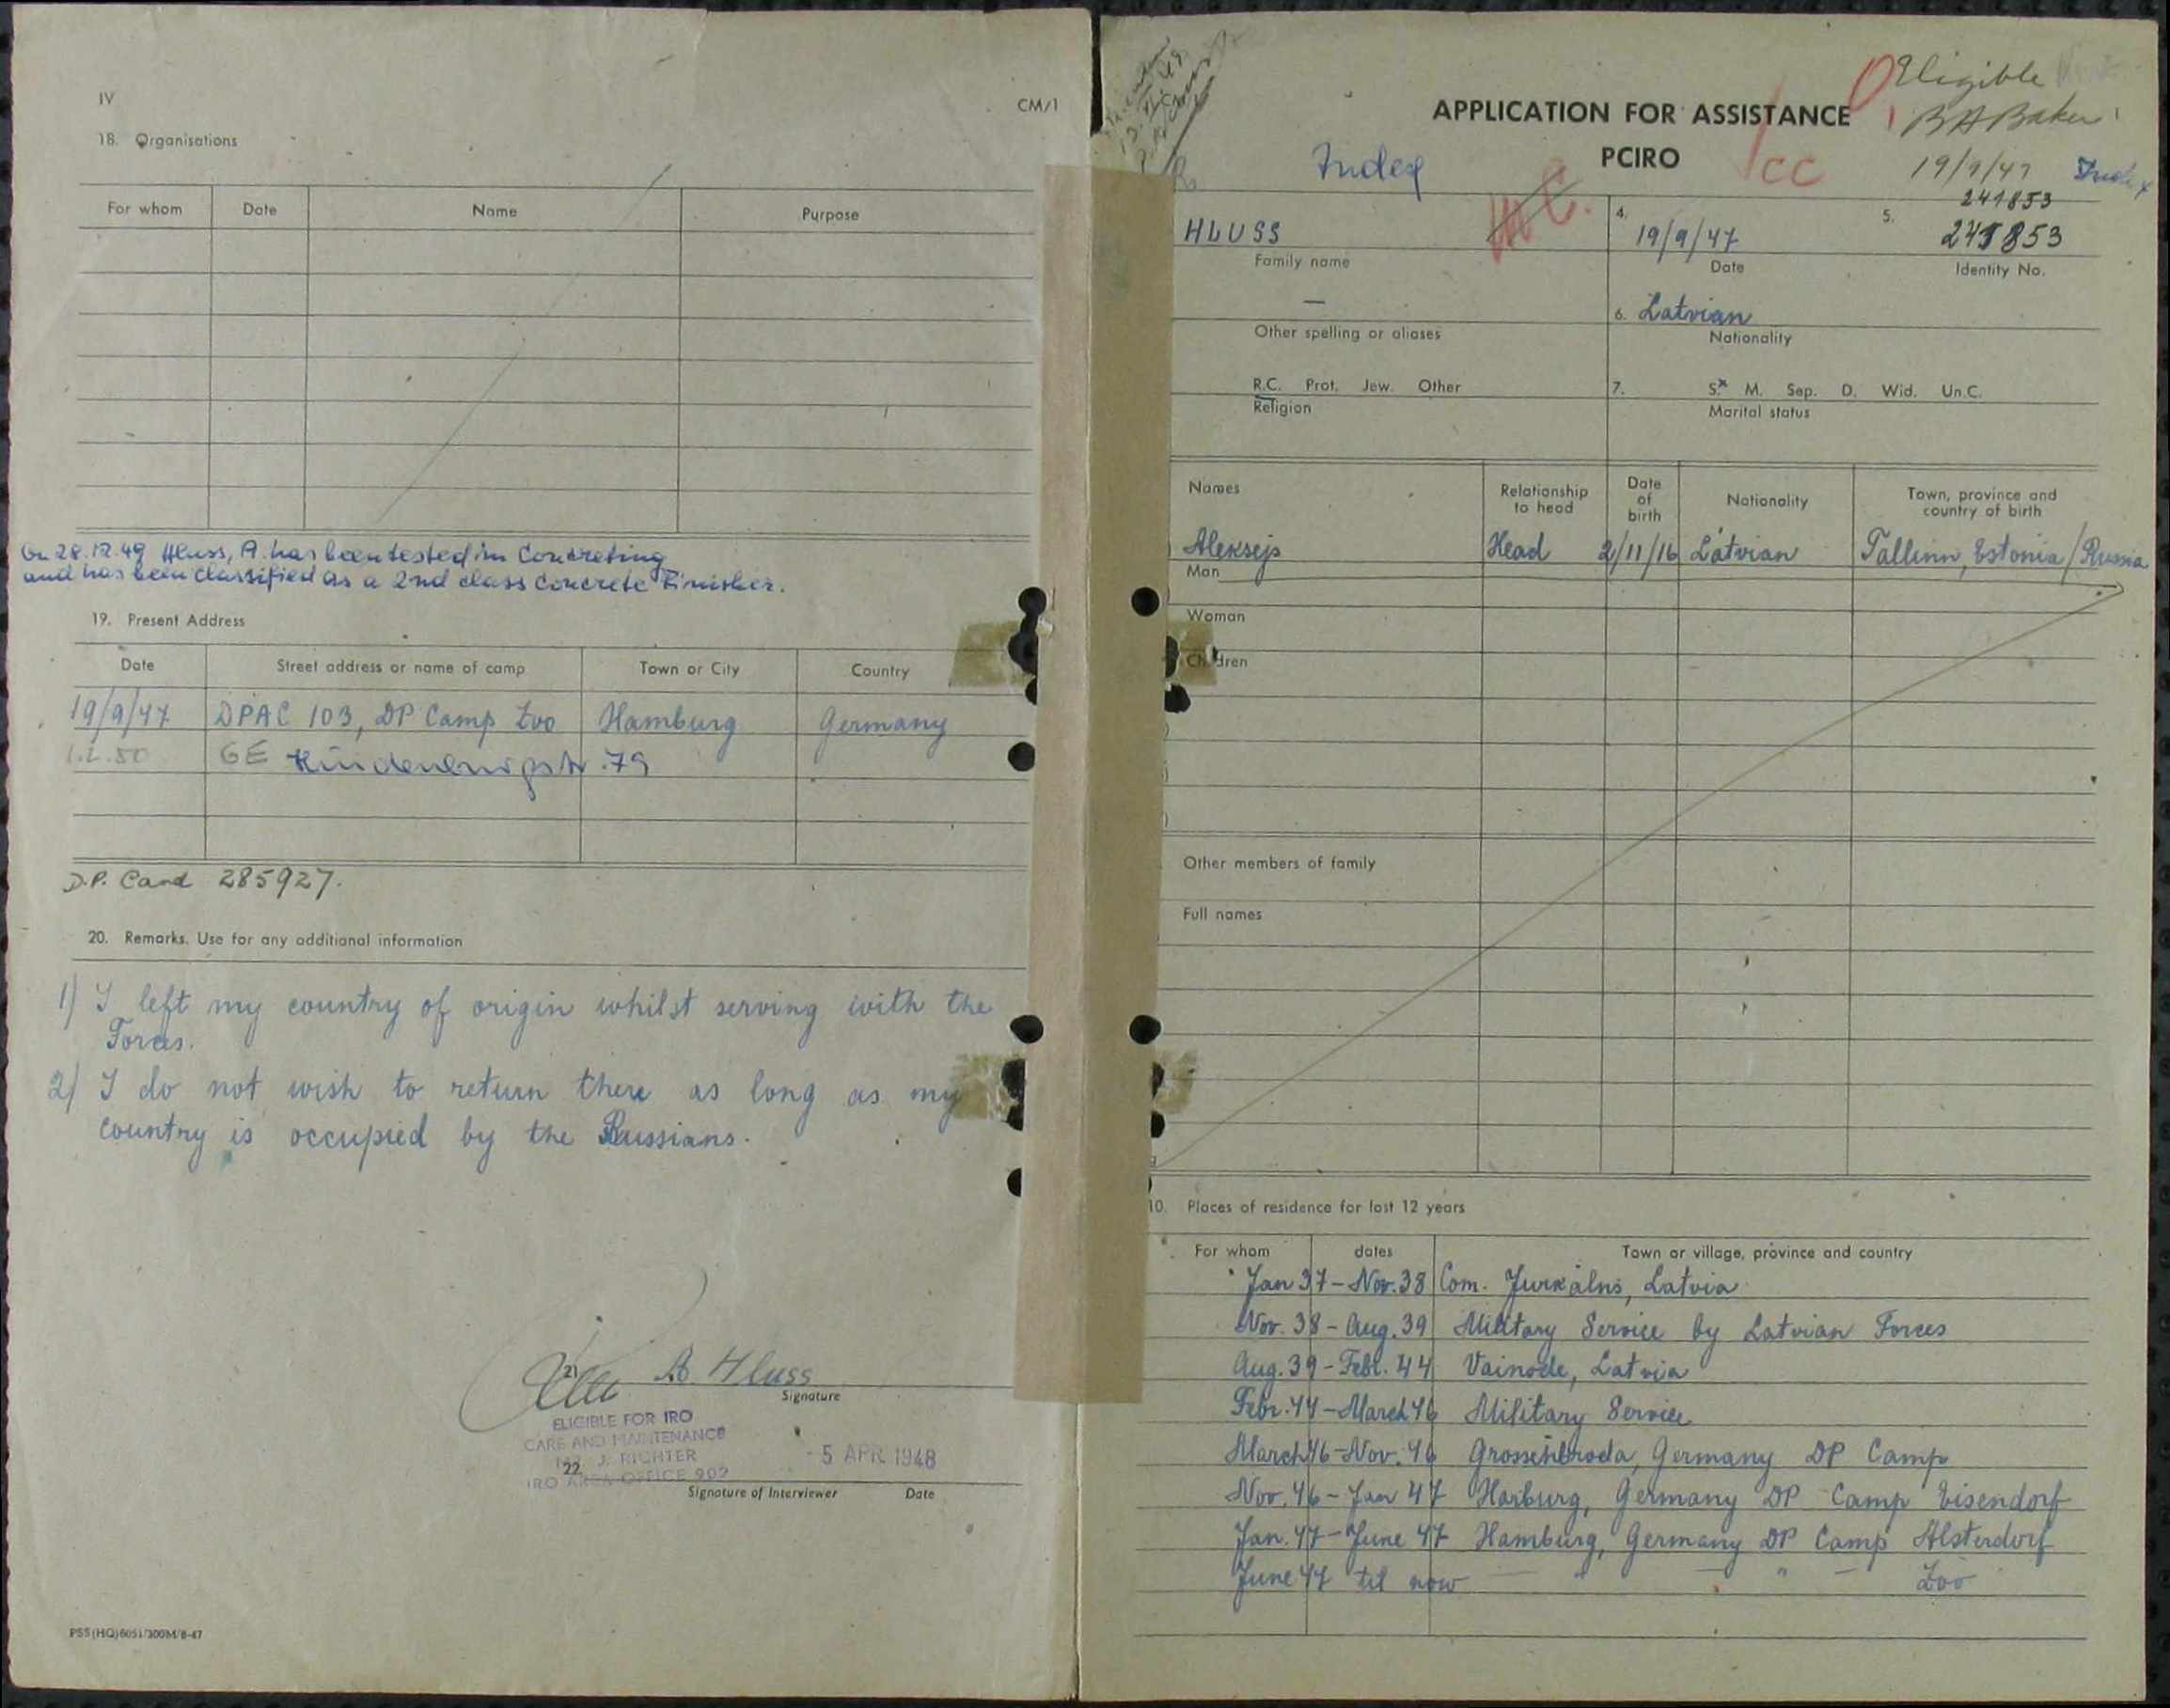 IV
CM/1
18. Organisations
For whom Date Name Purpose
On 28.12.49 Hluss, A. has been tested in Concreting
and has been classified as a 2nd class Concrete Finisher.
19. Present Address
Date Street address or name of camp Town or City Country
19/9/47 DPAC 103, DP Camp Zoo Hamburg Germany
1.2.50 GE 79
D.P. Card 285927.
20. Remarks. Use for any additional information
1) I left my country of origin whilst serving with the
Forces.
2) I do not wish to return there as long as my
country is occupied by the Russians.
21 A. Hluss
Signature
ELIGIBLE FOR IRO
CARE AND MAINTENANCE
J. RICHTER
- 5 APR 1948
22.
IRO AREA OFFICE 902
Signature of Interviewer Date
PSS (HQ) 6051/300M/8-47
Eligible
APPLICATION FOR ASSISTANCE
BABaker
PCIRO
Index
CC
19/9/47
Index
241853
HLUSS
4. 19/9/47
5. 241853
Family name
Date
Identity No.
—
6. Latvian
Other spelling or aliases
Nationality
R.C. Prot. Jew. Other
7. S. M. Sep. D. Wid. Un.C.
Religion
Marital status
Names Relationship to head Date of birth Nationality Town, province and country of birth
Aleksejs Head 2/11/16 Latvian Tallinn, Estonia/Russia
Man
Woman
Children
Other members of family
Full names
10. Places of residence for last 12 years
For whom dates Town or village, province and country
Jan 37 – Nov. 38 Com. Jurkalns, Latvia
Nov. 38 – Aug. 39 Military Service by Latvian Forces
Aug. 39 – Febr. 44 Vainode, Latvia
Febr. 44 – March 46 Military Service
March 46 – Nov. 46 Grossenbroda, Germany DP Camp
Nov. 46 – Jan 47 Harburg, Germany DP Camp Eisendorf
Jan. 47 – June 47 Hamburg, Germany DP Camp Alsterdorf
June 47 til now — " — " — Zoo